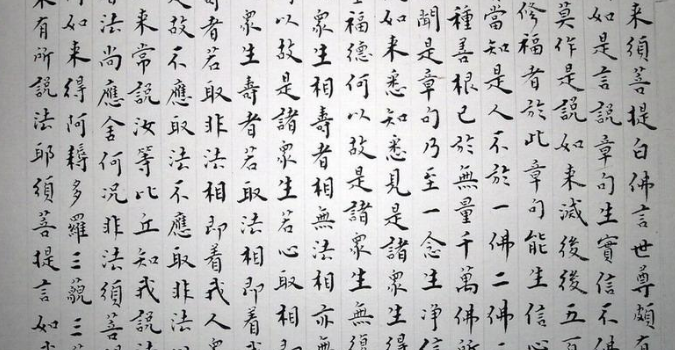 来須菩提白佛言世尊頗有
如是言說章句生實信不佛
莫作是說如来滅後後五百
修福者於此章句能生信心
當知是人不於一佛二佛
種善根已於無量千萬佛所
聞是章句乃至一念生净信
如来悉知悉見是諸眾生得
福德何以故是諸眾生無復
眾生相壽者相無法相亦無
以故是諸眾生若心取相即
眾生壽者若取法相即着我
壽者若取非法相即着我人眾
是故不應取法不應取非法以
来常說汝等比丘知我說法
法尚應舍何況非法須菩
如来得阿耨多羅三藐三菩
来有所說法耶須菩提言如我